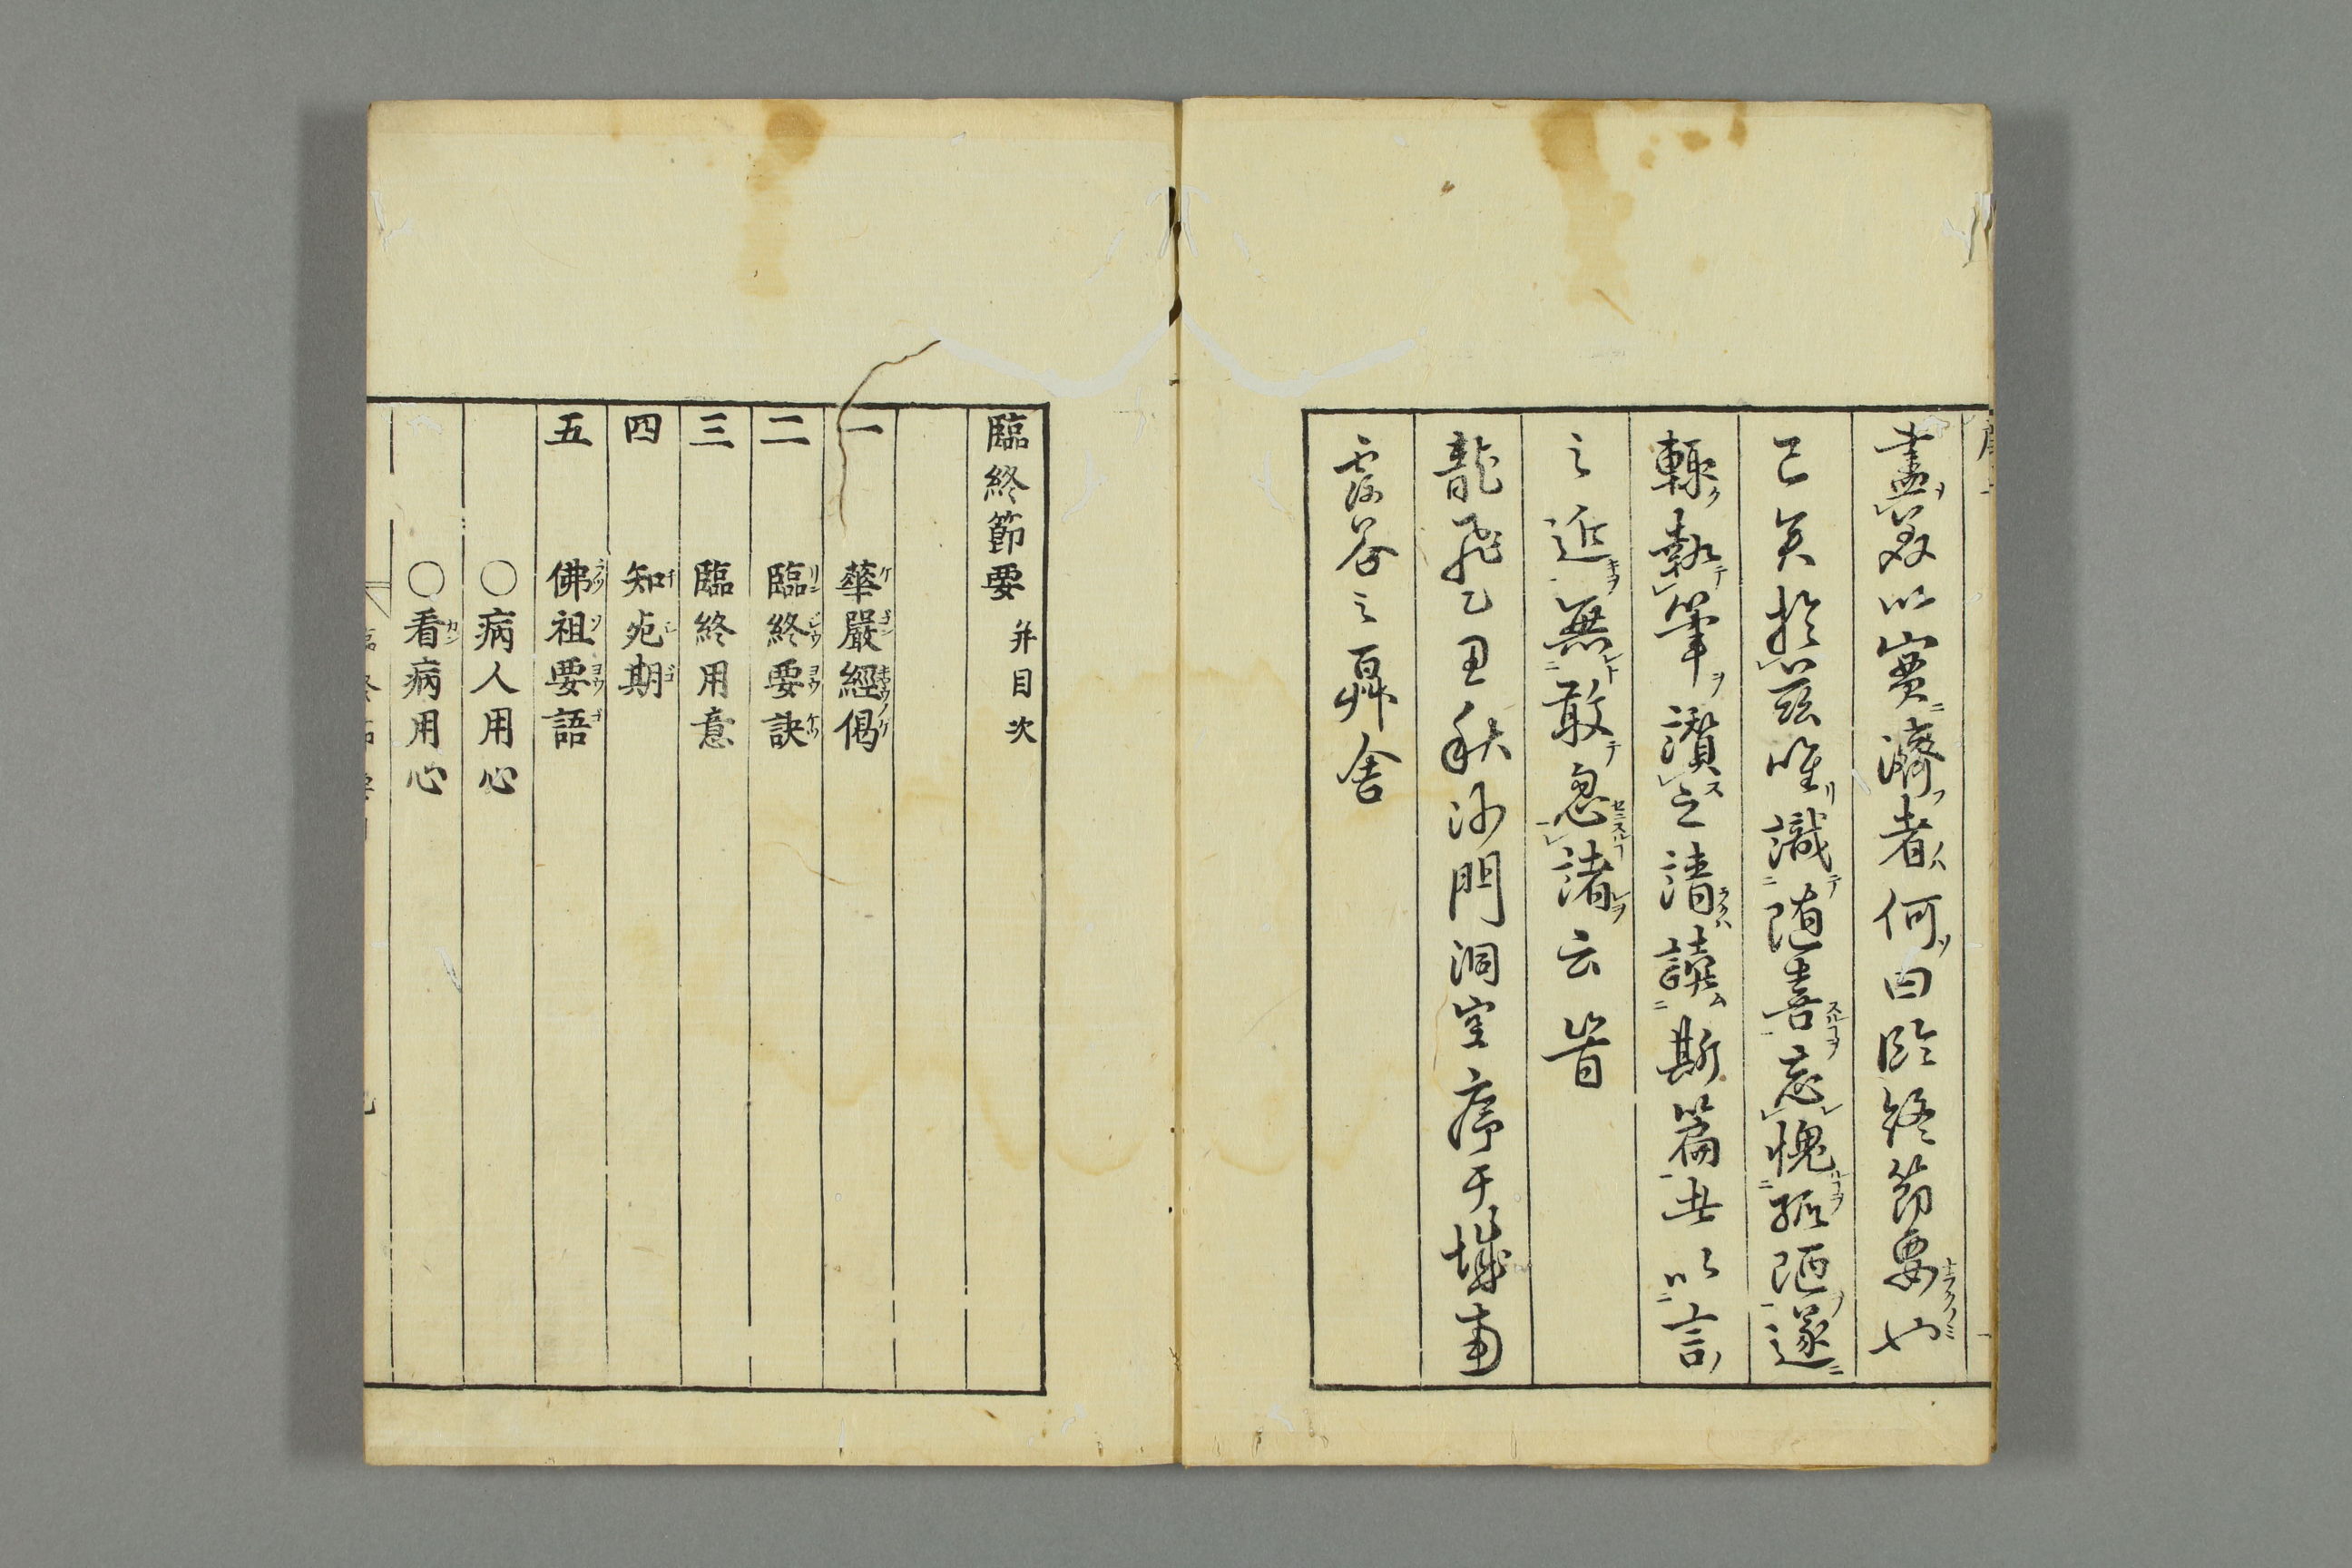 盡美以實濟者何曰臨終節要也
已矣於茲唯識隨喜忘愧孤陋遂
輙執筆讚之請讀斯篇無以言
之近無敢忽諸云皆
龍飛乙丑秋沙門洞空序于城南
霞谷之草舍
臨終節要 并目次
一 華嚴經偈
二 臨終要訣
三 臨終用意
四 知死期
五 佛祖要語
〇病人用心
〇看病用心